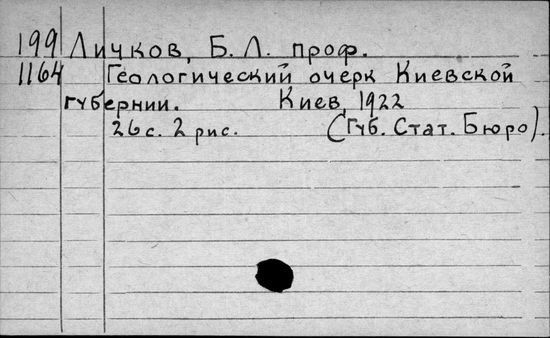 199 Личков, Б. Л. проф.
1164 Геологический очерк Киевской
губернии. Киев, 1922
26 с. 2 рис. (Губ. Стат. Бюро).